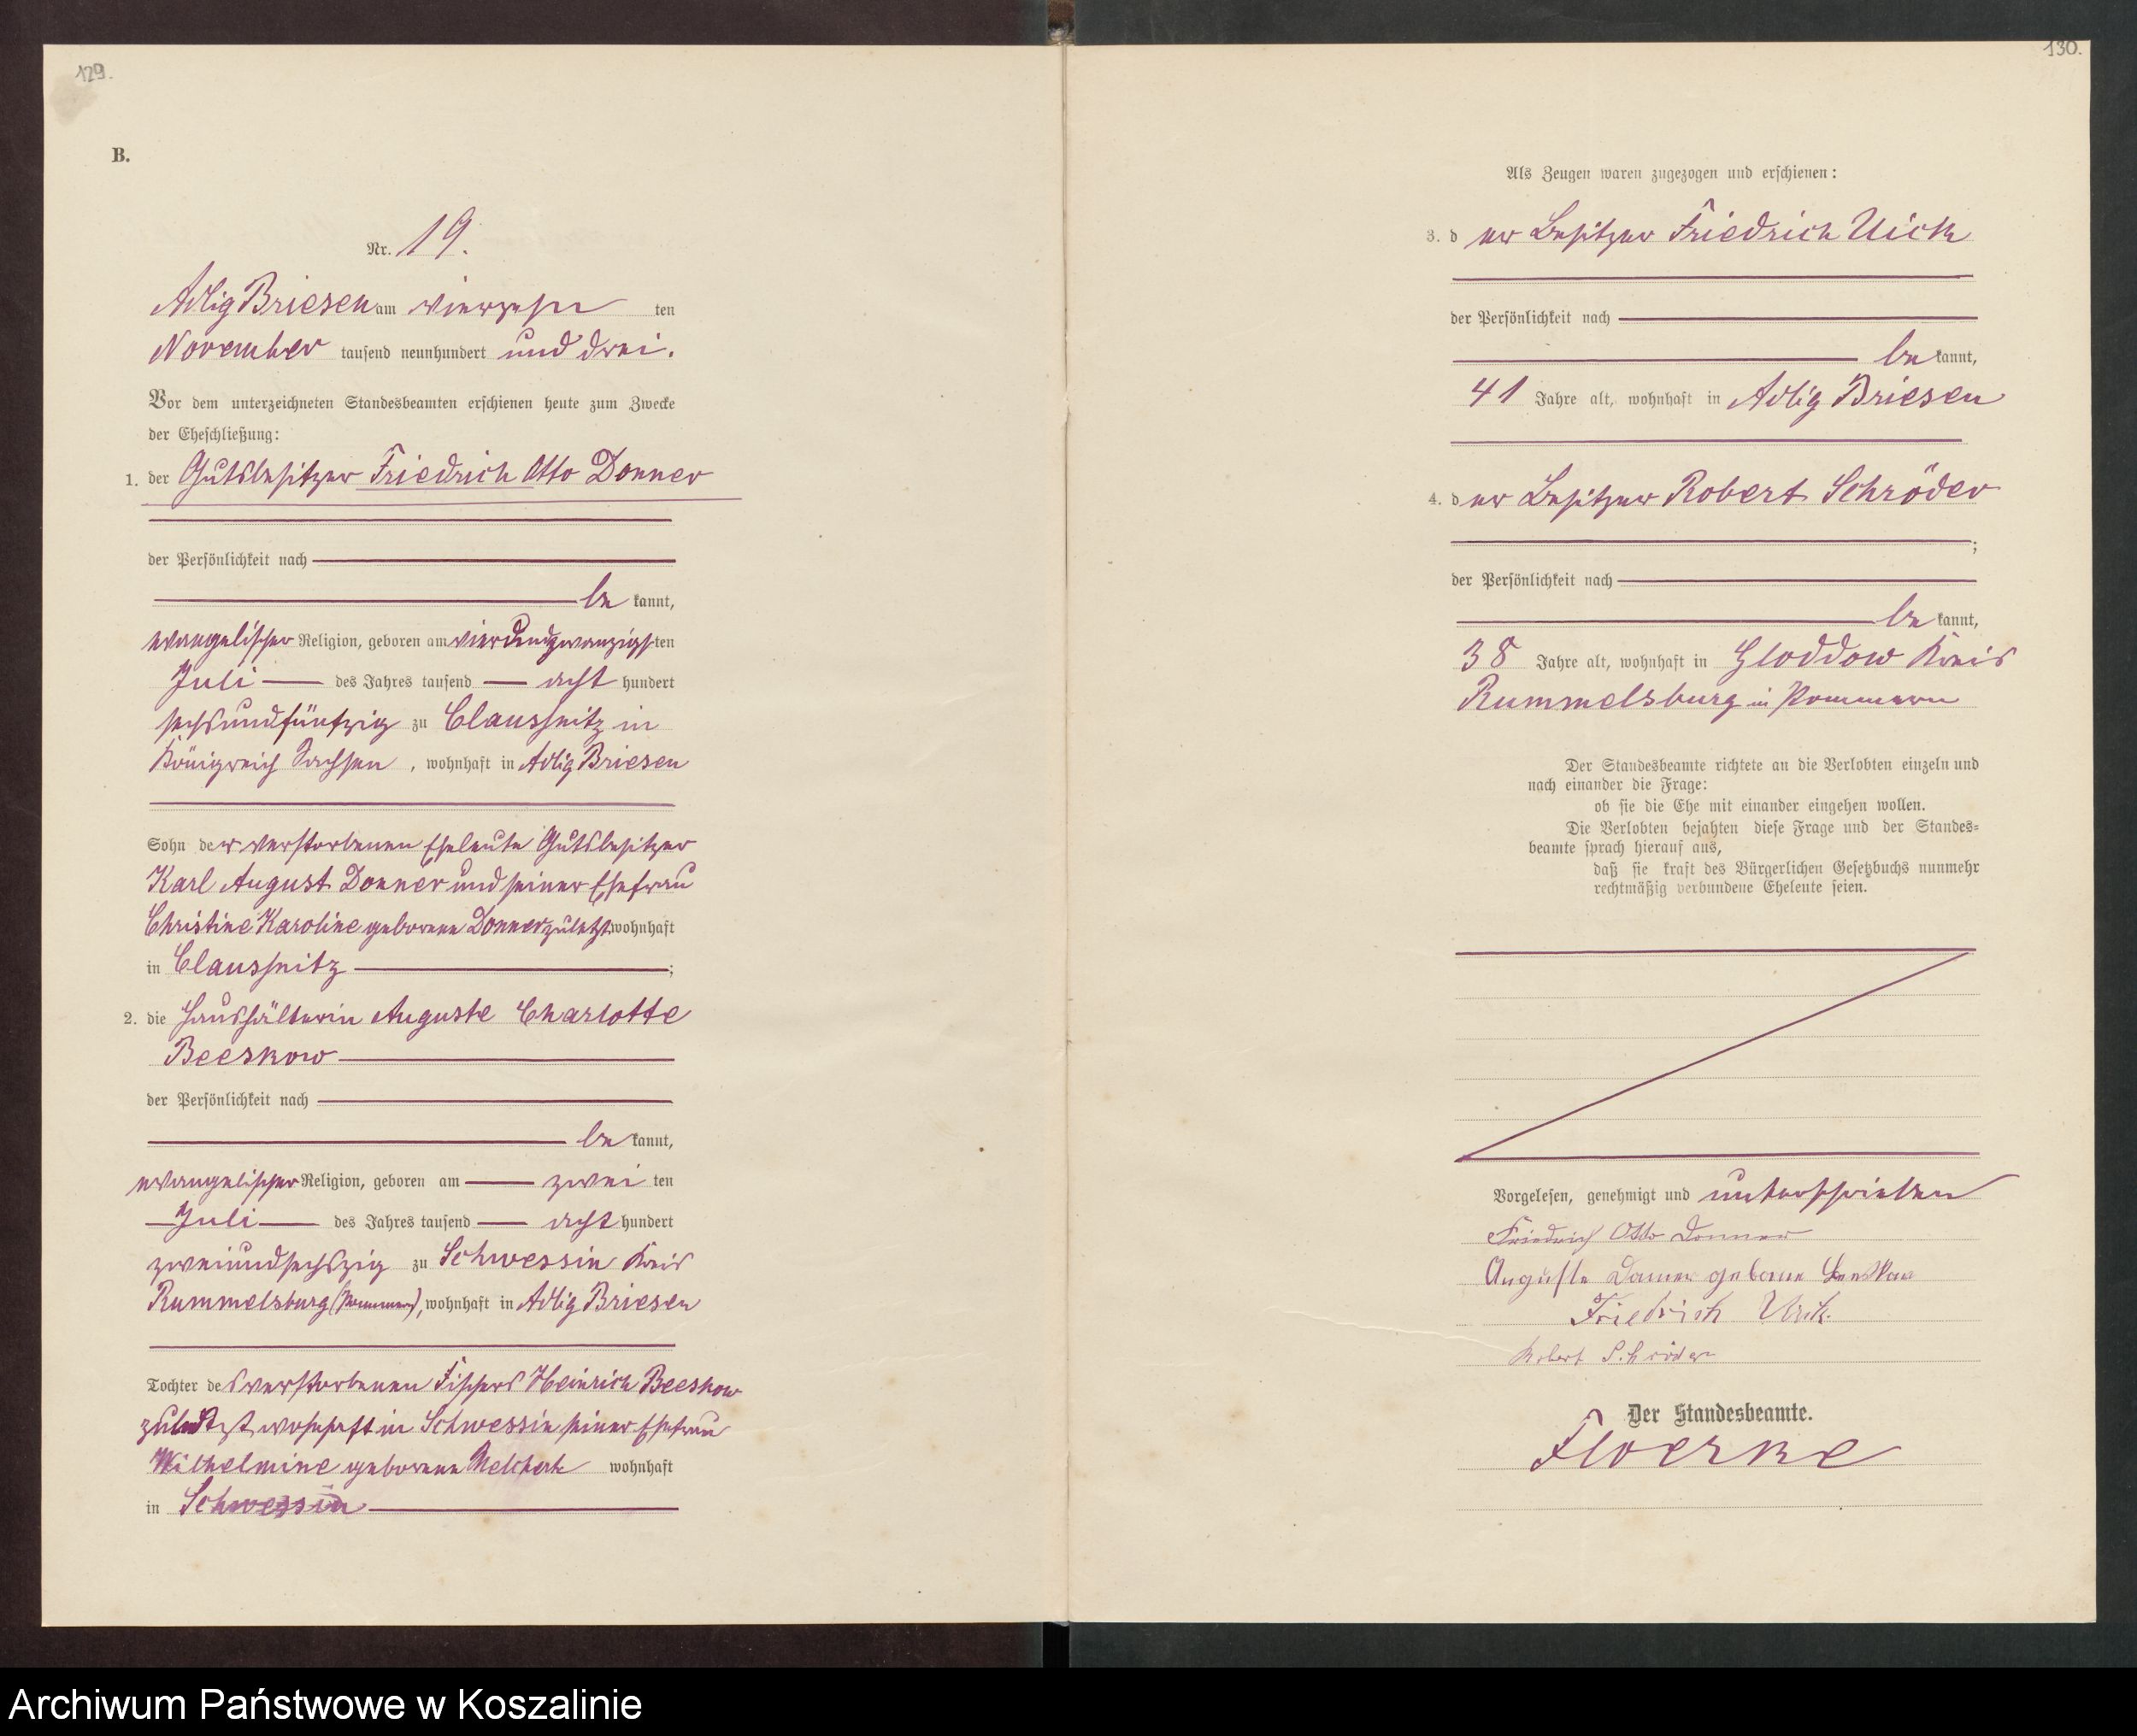 129.
B.
Nr. 19.
Adlig Briesen am vierzehn ten
November tausend neunhundert und drei.
Vor dem unterzeichneten Standesbeamten erschienen heute zum Zwecke
der Eheschließung:
1. der Gutsbesitzer Friedrich Otto Donner
der Persönlichkeit nach
be kannt,
evangelischer Religion, geboren am vierundzwanzigsten
Juli des Jahres tausend acht hundert
sechsundfünfzig zu Claussnitz in
Königreich Sachsen, wohnhaft in Adlig Briesen
Sohn der verstorbenen Eheleute Gutsbesitzer
Karl August Donner und seiner Ehefrau
Christine Karoline geborene Donner zuletzt wohnhaft
in Claussnitz ;
2. die Haushälterin Auguste Charlotte
Beeskow
der Persönlichkeit nach
be kannt,
evangelischer Religion, geboren am zwei ten
Juli des Jahres tausend acht hundert
zweiundsechszig zu Schwessin Kreis
Rummelsburg (Pommern), wohnhaft in Adlig Briesen
Tochter des verstorbenen Fischers Heinrich Beeskow
zuletzt wohnhaft in Schwessin seiner Ehefrau
Wilhelmine geborene wohnhaft
in Schwessin
130.
Als Zeugen waren zugezogen und erschienen:
3. der Besitzer Friedrich Uick
der Persönlichkeit nach
be kannt,
41 Jahre alt, wohnhaft in Adlig Briesen
4. der Besitzer Robert Schröder
;
der Persönlichkeit nach
be kannt,
38 Jahre alt, wohnhaft in Gloddow Kreis
Rummelsburg in Pommern
Der Standesbeamte richtete an die Verlobten einzeln und
nach einander die Frage:
ob sie die Ehe mit einander eingehen wollen.
Die Verlobten bejahten diese Frage und der Standes=
beamte sprach hierauf aus,
daß sie kraft des Bürgerlichen Gesetzbuchs nunmehr
rechtmäßig verbundene Eheleute seien.
Vorgelesen, genehmigt und unterschrieben
Friedrich Otto Donner
Auguste Donner geborne Beeskow
Friedrich Uick.
Robert Schröder
Der Standesbeamte.
Floerke
Archiwum Państwowe w Koszalinie